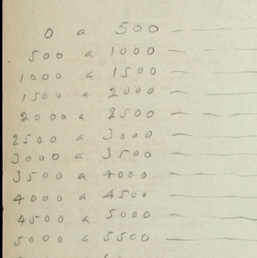 0 a 500 —
500 a 1000 —
1000 a 1500 —
1500 a 2000 —
2000 a 2500 —
2500 a 3000 —
3000 a 3500 —
3500 a 4000 —
4000 a 4500 —
4500 a 5000 —
5000 a 5500 —